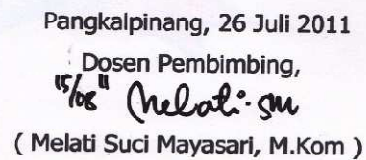 Pangkalpinang, 26 Juli 2011
Dosen Pembimbing,
15/08 "
Melati. sm
( Melati Suci Mayasari, M.Kom )